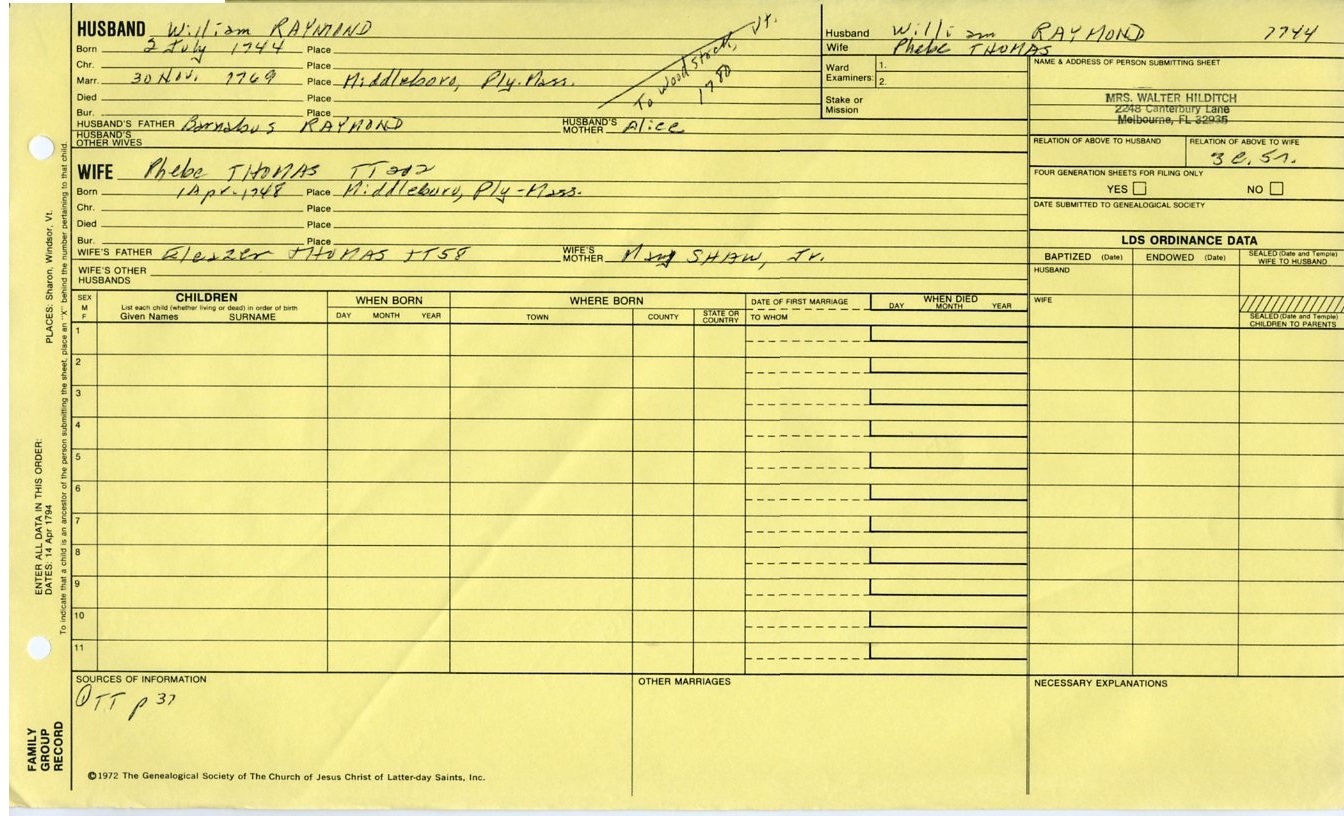 HUSBAND William RAYMOND
Born 2 July 1744 Place
Chr. Place
Marr. 30 Nov. 1769 Place Middleboro, Ply. Mass.
Died Place
Bur. Place
To Woodstock, Vt.
1780
HUSBAND'S FATHER Barnabus RAYMOND HUSBAND'S MOTHER Alice
HUSBAND'S OTHER WIVES
WIFE Phebe THOMAS TT202
Born 1 Apr. 1748 Place Middleboro, Ply-Mass.
Chr. Place
Died Place
Bur. Place
WIFE'S FATHER Eleazer THOMAS TT58 WIFE'S MOTHER Mary SHAW, Jr.
WIFE'S OTHER HUSBANDS
Husband William RAYMOND 1744
Wife Phebe THOMAS
Ward Examiners: 1.
2.
Stake or Mission
NAME & ADDRESS OF PERSON SUBMITTING SHEET
MRS. WALTER HILDITCH
2248 Canterbury Lane
Melbourne, FL 32935
RELATION OF ABOVE TO HUSBAND RELATION OF ABOVE TO WIFE
FOUR GENERATION SHEETS FOR FILING ONLY
YES NO
DATE SUBMITTED TO GENEALOGICAL SOCIETY
LDS ORDINANCE DATA
BAPTIZED (Date) ENDOWED (Date) SEALED (Date and Temple) WIFE TO HUSBAND
HUSBAND
WIFE
SEALED (Date and Temple) CHILDREN TO PARENTS
SEX M F
CHILDREN
List each child (whether living or dead) in order of birth
Given Names SURNAME
WHEN BORN
DAY MONTH YEAR
WHERE BORN
TOWN COUNTY STATE OR COUNTRY
DATE OF FIRST MARRIAGE
TO WHOM
WHEN DIED
DAY MONTH YEAR
1
2
3
4
5
6
7
8
9
10
11
SOURCES OF INFORMATION
① TT p 37
OTHER MARRIAGES
NECESSARY EXPLANATIONS
©1972 The Genealogical Society of The Church of Jesus Christ of Latter-day Saints, Inc.
FAMILY GROUP RECORD
ENTER ALL DATA IN THIS ORDER:
DATES: 14 Apr 1794
PLACES: Sharon, Windsor, Vt.
To indicate that a child is an ancestor of the person submitting the sheet, place an "X" behind the number pertaining to that child.